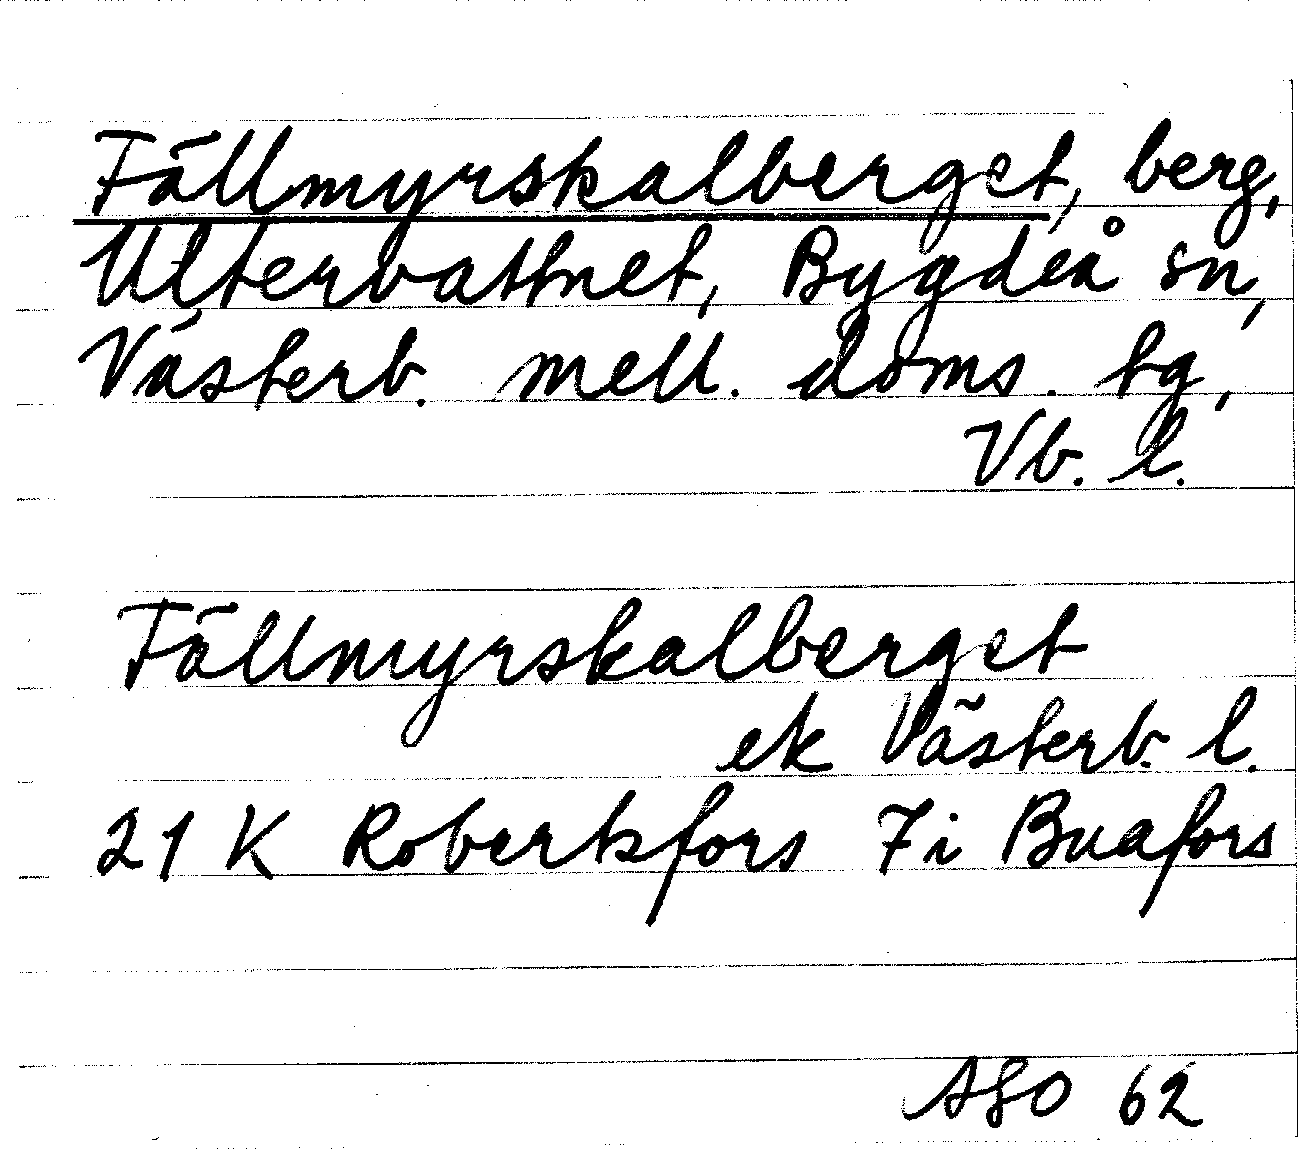 Fällmyrskalberget, berg,
Ultervattnet, Bygdeå sn,
Västerb. mell. doms. tg,
Vb. l.
Fällmyrskalberget
ek Västerb. l.
21 K Robertsfors 7i Buafors
62